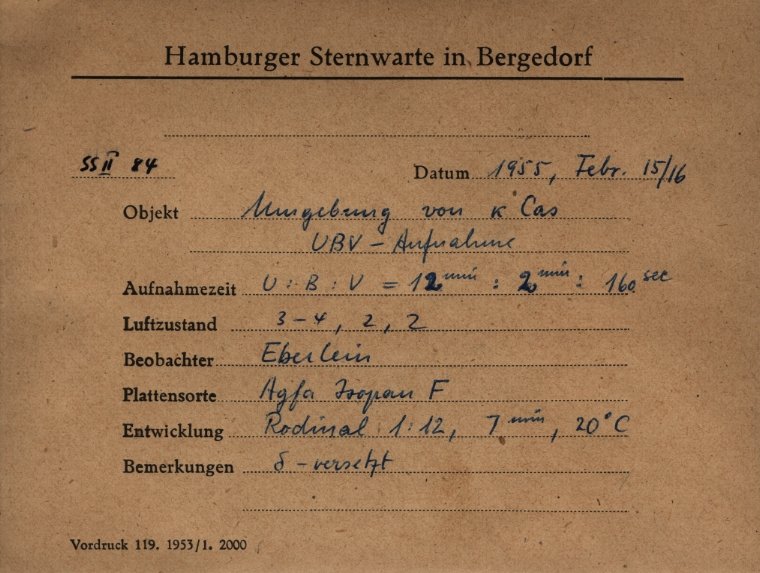 Hamburger Sternwarte in Bergedorf
SS II 84
Datum 1955, Febr. 15/16
Objekt Umgebung von κ Cas
UBV - Aufnahme
Aufnahmezeit U : B : V = 12 min : 2 min : 160 sec
Luftzustand 3-4, 2, 2
Beobachter Eberlein
Plattensorte Agfa Isopan F
Entwicklung Rodinal 1:12, 7 min, 20°C
Bemerkungen δ - versetzt
Vordruck 119. 1953/1. 2000